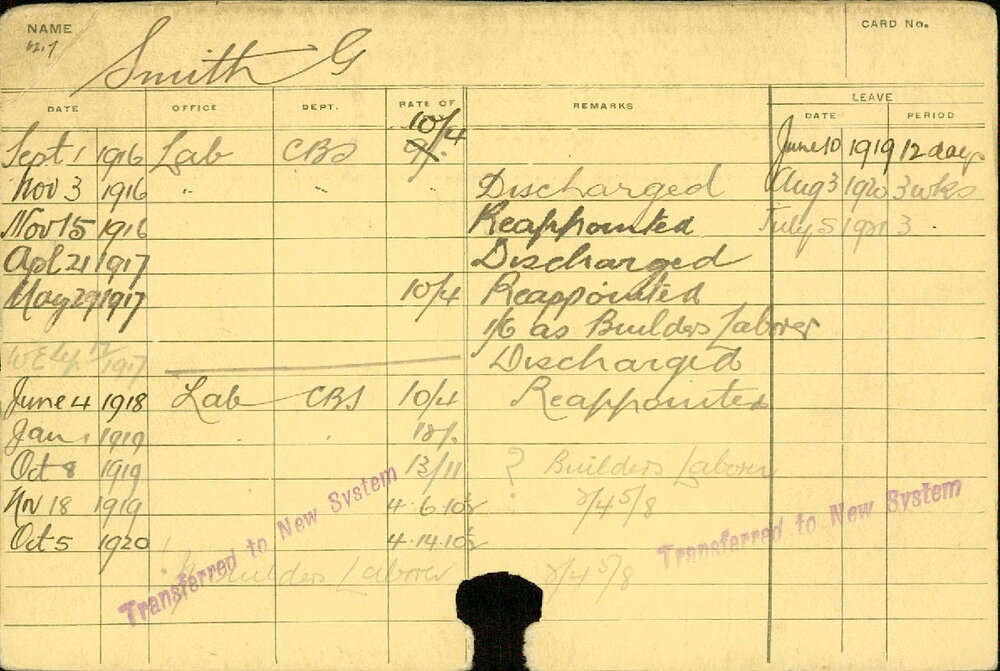 NAME
CARD No.
Smith G
DATE OFFICE DEPT. RATE OF REMARKS LEAVE
DATE PERIOD
10/4
Sept 1 1916 Lab CBS 9/- June 10 1919 12 days
Nov 3 1916 " Discharged Aug 3 1920 3 wks
Nov 15 1916 Reappointed July 5 1921 3
Apl 21 1917 Discharged
May 29 1917 10/4 Reappointed
1/6 as Builders Laborer
WE Sep 1917 Discharged
June 4 1918 Lab CBS 10/4 Reappointed
Jan 1 1919
Oct 8 1919 13/11 ? Builders Laborer
Nov 18 1919 4.6.10½ 2/4 5/8
Oct 5 1920 4.14.10½
Transferred to New System
Transferred to New System
Builders Laborer 2/4 5/8